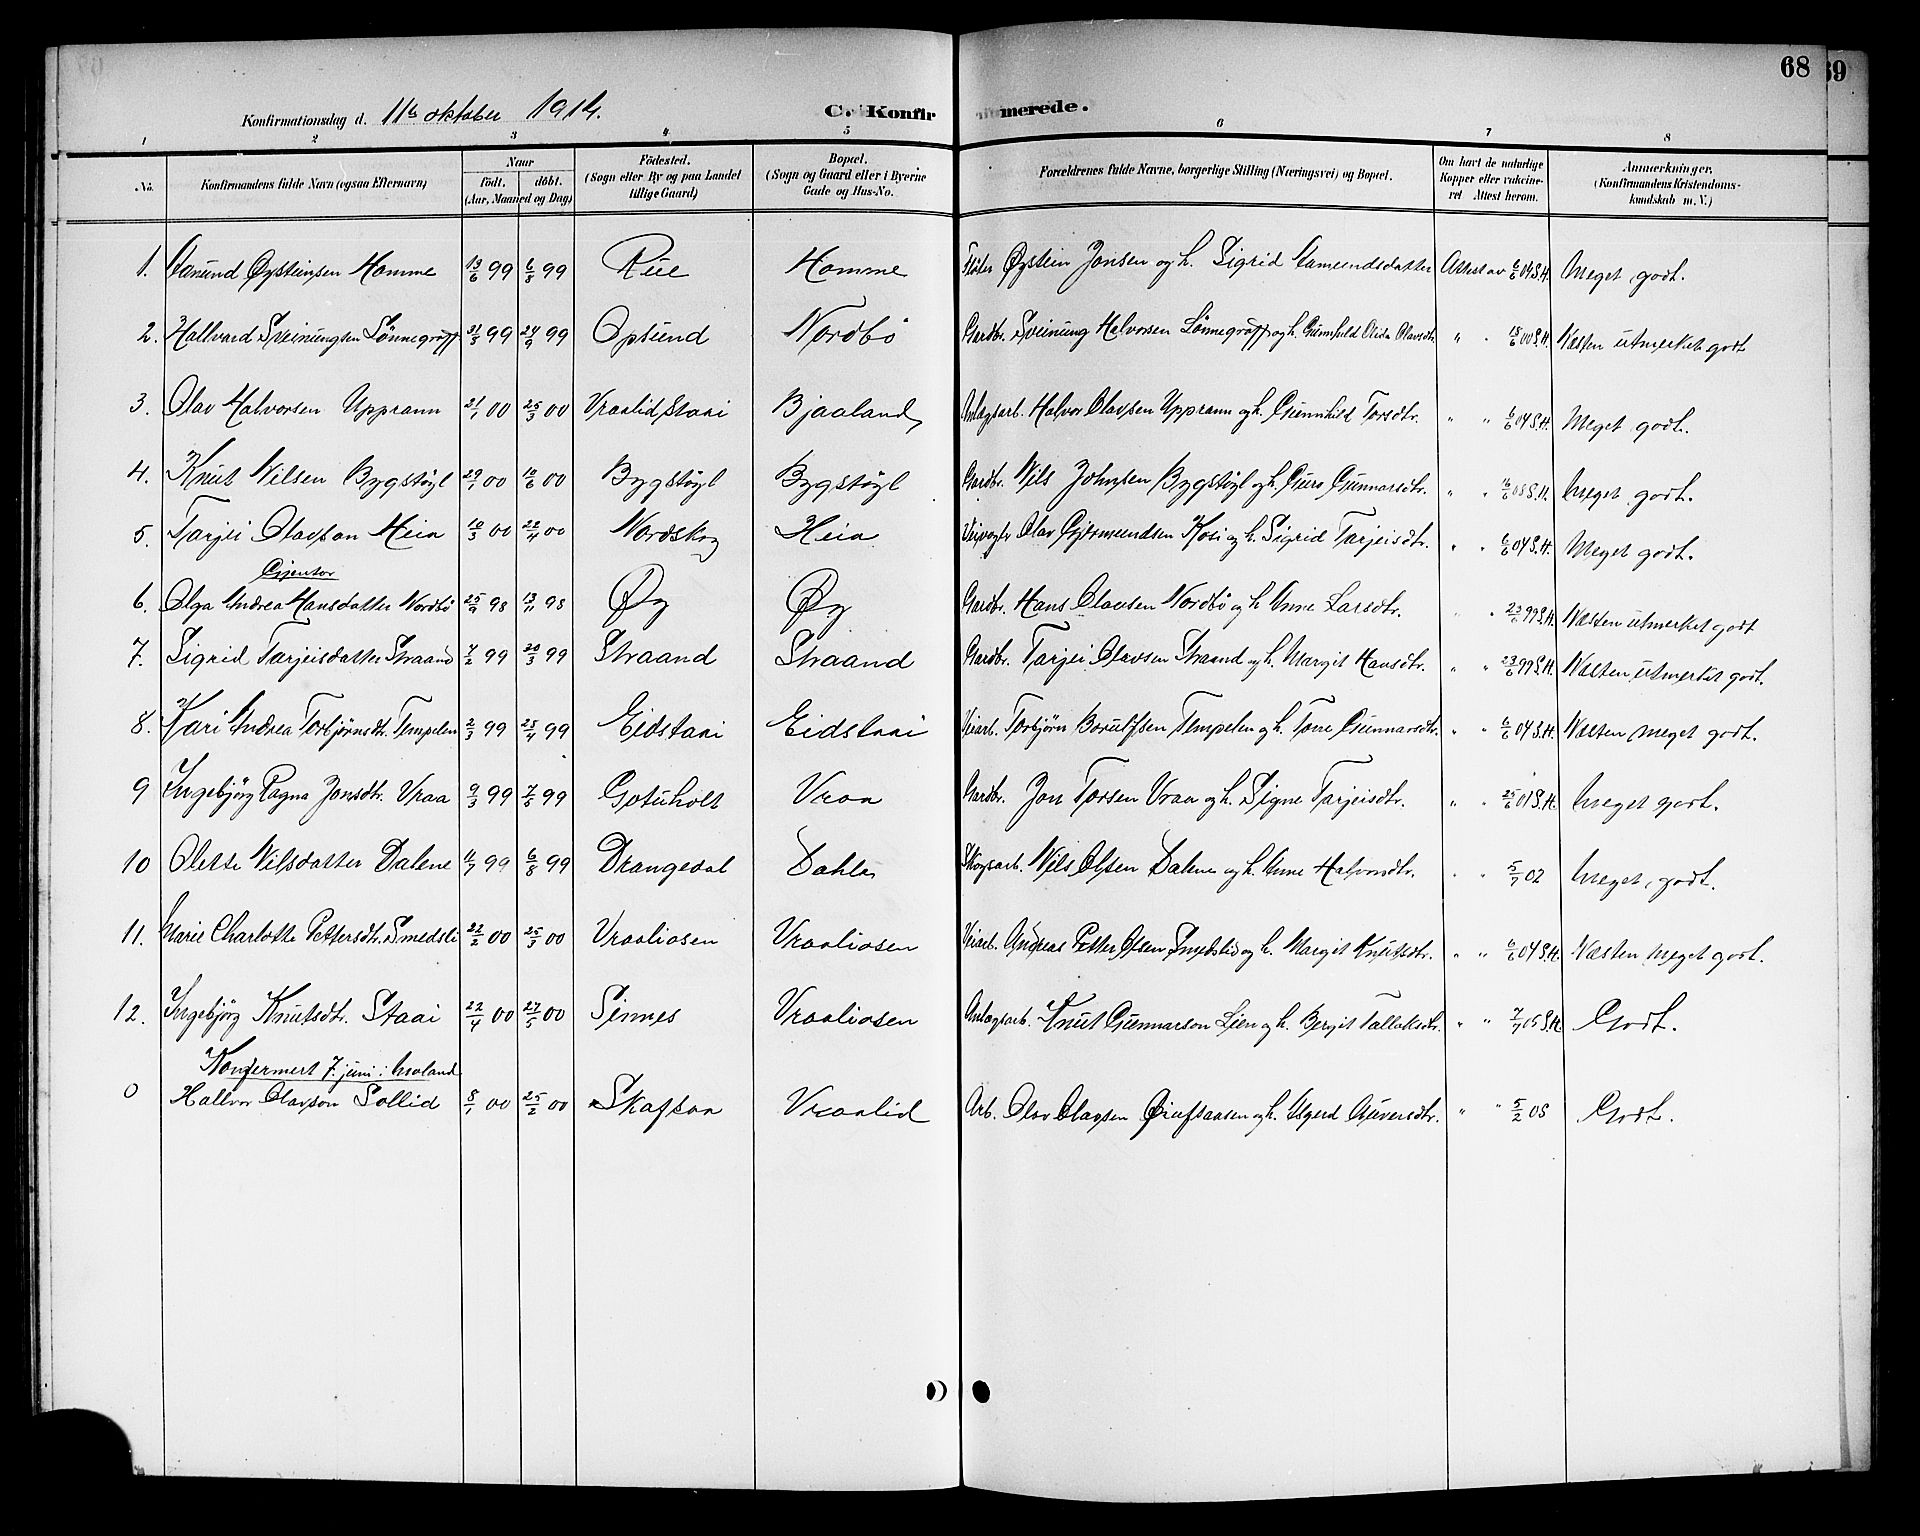 68
69
Konfirmationsdag d. 11te oktober 1914.
C. Konfirmerede.
1 2 3 4 5 6 7 8
No. Konfirmandens fulde Navn (ogsaa Efternavn) Naar födt. döbt. (Aar, Maaned og Dag) Födested. (Sogn eller By og paa Landet tillige Gaard) Bopæl. (Sogn og Gaard eller i Byerne Gade og Hus-No. Forældrenes fulde Navne, borgerlige Stilling (Næringsvei) og Bopæl. Om havt de naturlige Kopper eller vakcineret Attest herom. Anmærkninger. (Konfirmandens Kristendomskundskab m. V.)
1. Aanund Øysteinsen Homme 13/6 99 6/8 99 Rue Homme Øystein Jonsen og h. Sigrid Aamundsdatter Attest av 6/6 04 S.H. Meget godt.
2. Hallvard Sveinungsen Lönnegraff 31/3 99 24/9 99 Opsund Nordbö Gardbr. Sveinung Halvorsen Lönnegraff og h. Gunhild Olavsdtr. " " 18/6 00 S.H. Næsten utmerket godt
3. Olav Halvorsen Upprann 21/1 00 25/3 00 Vraalid Staai Bjaaland Anlægsarb. Halvor Olavsen Upprann og h. Gunnhild Torsdtr. " " 6/6 04 S.H. Meget godt.
4. Knut Nilsen Bygstöyl 29/1 00 10/6 00 Bygstöyl Bygstöyl Gardbr. Nils Johnsen Bygstöyl og h. Guro Gunnarsdtr. " " 16/6 08 S.H. Meget godt.
5. Tarjei Olavson Heia 10/3 00 22/4 00 Nordskog Heia Veivogter Olav Gjermundsen Kosi og h. Sigrid Tarjeisdtr. " " 6/6 04 S.H. Meget godt.
Gjentor
6. Olga Andrea Hansdatter Nordbö 25/9 98 13/11 98 Øy Øy Gardbr. Hans Olavsen Nordbö og h. Anne Larsdtr. " " 23/6 99 S.H. Næsten utmerket godt
7. Sigrid Tarjeisdatter Straand 7/2 99 30/3 99 Straand Straand Gardbr. Tarjei Olavsen Straand og h. Margit Hansdtr. " " 23/6 99 S.H. Næsten utmerket godt.
8. Kari Andrea Torbjörnsdt. Tempelen 2/3 99 25/4 99 Eidstaai Eidstaai Veiarb. Torbjörn Borulfsen Tempelen og h. Tone Gunnarsdtr. " " 6/6 04 S.H. Næsten meget godt.
9 Ingebjörg Ragna Jonsdtr. Vraa 9/3 99 7/5 99 Gotuholt Vraa Gardbr. Jon Torsen Vraa og h. Signe Tarjeisdtr. " " 25/6 01 S.H. Meget godt.
10 Olette Nilsdatter Dalene 11/7 99 6/8 99 Drangedal Dahle Skogsarb. Nils Olsen Dalene og h. Anne Halvorsdtr. " " 5/7 02 Meget godt.
11. Marie Charlotte Pettersdtr. Smedsli 22/2 00 25/3 00 Vraaliosen Vraaliosen Veiarb. Andreas Petter Olsen Smedslid og h. Margit Knutsdtr. " " 6/6 04 S.H. Næsten meget godt.
12. Ingebjörg Knutsdtr. Staai 22/4 00 27/5 00 Sinnes Vraaliosen Anlægsarb. Knut Gunnarson Lien og h. Bergit Tallaksdtr. " " 7/7 05 S.H. Godt.
Konfermert 7. juni i Moland
0 Hallvor Olavson Sollid 8/1 00 25/2 00 Skafsaa Vraalid Arb. Olav Olavsen og h. " " 5/2 05 Godt.